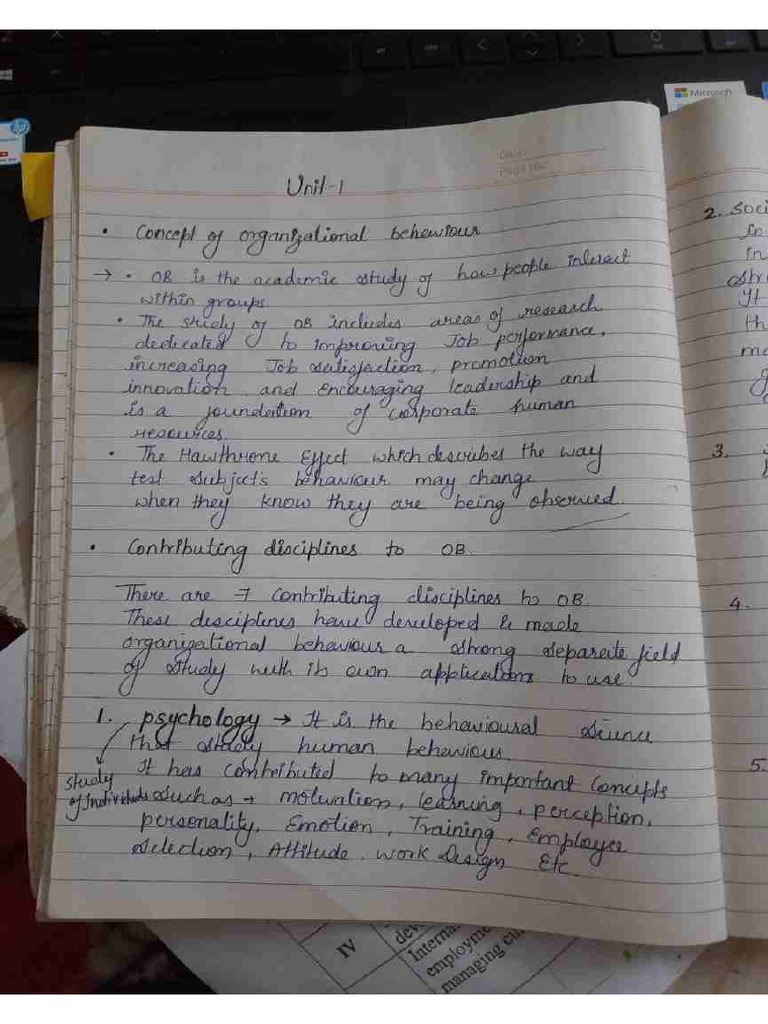 Microsoft
hp
Date:
Page No:
Unit-1
• Concept of organizational behaviour
→ • OB is the academic study of how people interact
within groups
• The study of OB includes areas of research
dedicated to improving Job performance,
increasing Job satisfaction, promotion
innovation and encouraging leadership and
is a foundation of corporate human
resources.
• The Hawthrone Effect which describes the way
test subject's behaviour may change
when they know they are being observed.
• Contributing disciplines to OB.
There are 7 contributing disciplines to OB.
These desciplines have developed & made
organizational behaviour a strong separate field
of study with its own applications to use.
1. psychology → It is the behavioural science
that study human behaviour.
It has contributed to many important concepts
study
of individuals such as → motivation, learning, perception,
personality, Emotion, Training, Employee
selection, Attitude, work Design Etc.
2. Soci
in
in
It
th
3.
4.
5.
IV
dev
Interna
employme
managing cu